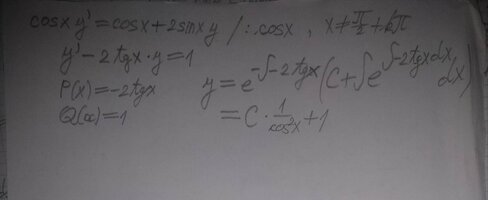 cosx y' = cosx + 2sinx y / : cosx , x ≠ π/2 + kπ
y' - 2tgx · y = 1
P(x) = -2tgx
Q(x) = 1
y = e^(-∫-2tgx) (C + ∫e^(∫-2tgxdx) dx)
= C · 1/cos²x + 1